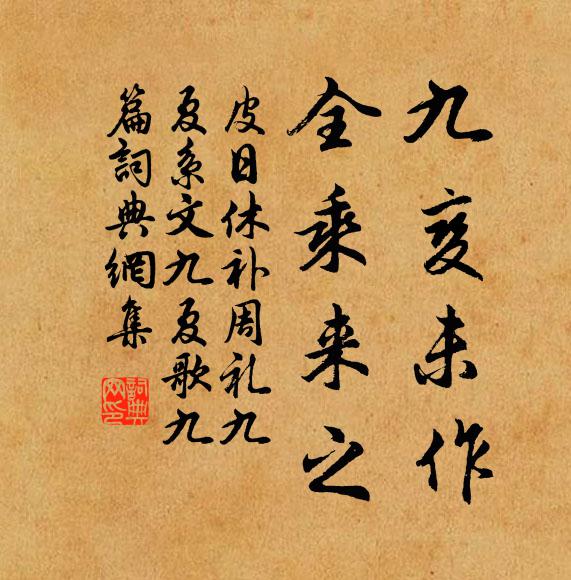 九变未作
全乘来之
皮日休补周礼九
夏系文九夏歌九
篇詞典網集
詞典
网印